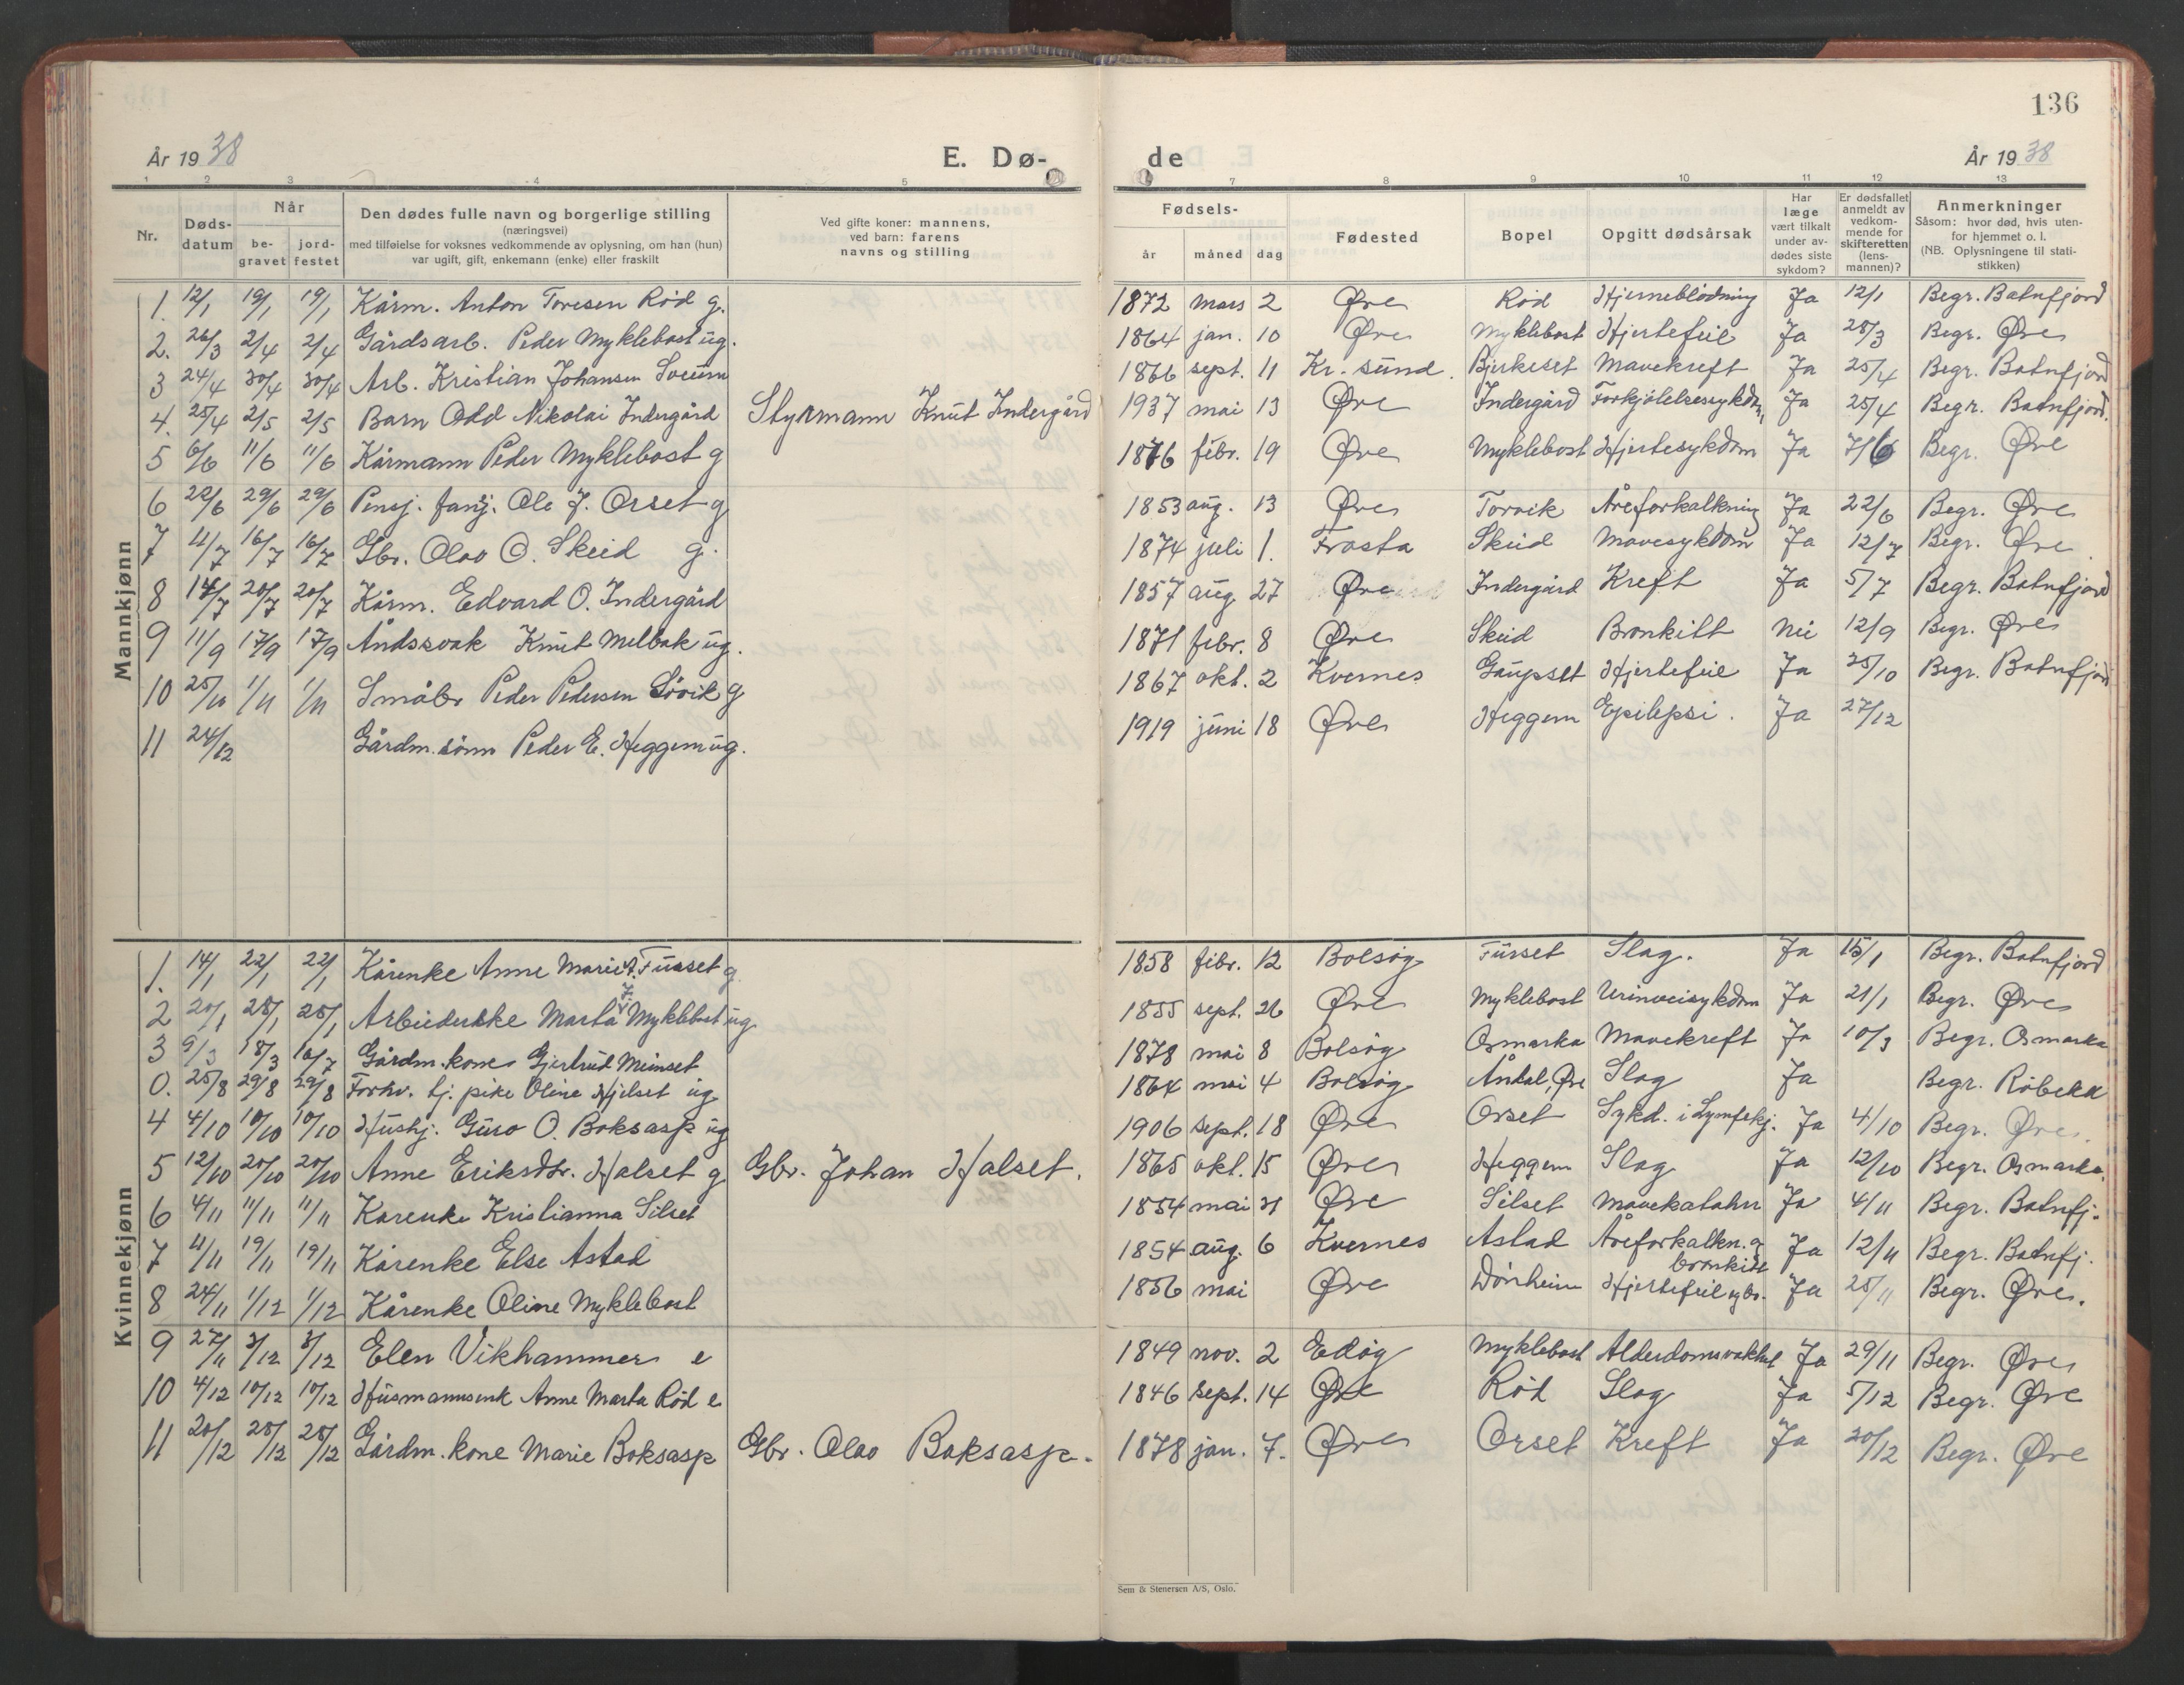 136
År 1938 E. Dø- de År 1938
1 2 3 4 5 7 8 9 10 11 12 13
Nr. Dødsdatum Når begravet jordfestet Den dødes fulle navn og borgerlige stilling (næringsvei) med tilføielse for voksnes vedkommende av oplysning, om han (hun) var ugift, gift, enkemann (enke) eller fraskilt Ved gifte koner: mannens, ved barn: farens navns og stilling Fødsels- år måned dag Fødested Bopel Opgitt dødsårsak Har læge vært tilkalt under avdødes siste sykdom? Er dødsfallet anmeldt av vedkommende for skifteretten (lensmannen)? Anmerkninger Såsom: hvor død, hvis utenfor hjemmet o. l. (NB. Oplysningene til statistikken)
Mannkjønn
1. 12/1 19/1 19/1 Kårm. Anton Toresen Rød g. 1872 mars 2 Øre Rød Hjerneblödning Ja 12/1 Begr. Batnfjord
2. 26/3 2/4 2/4 Gårdsarb. Peder Myklebost ug. 1864 jan. 10 Øre Myklebost Hjertefeil Ja 28/3 Begr. Øre
3 24/4 30/4 30/4 Arb. Kristian Johansen Sveum 1866 sept. 11 Kr.sund. Bjerkeset Mavekreft Ja 25/4 Begr. Batnfjord
4. 25/4 2/5 2/5 Barn Odd Nikolai Indergård Styrmann Knut Indergård 1937 mai 13 Øre Indergård Forkjölelsessykdm, Ja 25/4 Begr. Batnfjord.
5 6/6 11/6 11/6 Kårmann Peder Myklebost g 1876 febr. 19 Øre Myklebost Hjertesykdom Ja 7/6 Begr. Øre
6 22/6 29/6 29/6 Pensj. fanj. Ole J. Orset g 1853 aug. 13 Øre Torvik Åreforkalkning Ja 22/6 Begr. Øre
7 11/7 16/7 16/7 Gbr. Olav O. Skeid g. 1874 juli 1. Frosta Skeid Mavesykdom Ja 12/7 Begr. Øre.
8 14/7 20/7 20/7 Kårm. Edvard O. Indergård 1857 aug 27 Øre Indergård Kreft Ja 5/7 Begr. Batnfjord
9 11/9 17/9 17/9 Åndssvak Knut Melbak ug. 1871 febr. 8 Øre Skeid Bronkitt Nei 12/9 Begr. Øre
10 25/10 1/11 1/11 Småbr Peder Pedersen Sövik g 1867 okt. 2 Kvernes Gaupset Hjertefeil Ja 25/10 Begr. Batnfjord
11 24/12 Gårdm.sönn Peder E. Heggem ug. 1919 juni 18 Øre Heggem Epilepsi. Ja 27/12
Kvinnekjønn
1. 14/1 22/1 22/1 Kårenke Anne Marie A. Furset g 1858 febr. 12 Bolsöy Furset Slag. Ja 15/1 Begr. Batnfjord
2 20/1 28/1 28/1 Arbeiderske Marta J. Myklebost ug 1855 sept. 26 Øre Myklebost Urinveisykdom Ja 21/1 Begr. Øre
3 9/3 18/3 16/7 Gårdm.kone Gjertrud Meinset 1878 mai 8 Bolsöy Osmarka Mavekreft Ja 10/3 Begr. Osmarka
0. 25/8 29/8 29/8 Forhv. tj. pike Oline Hjelset ug 1864 mai 4 Bolsöy Åndal, Øre Slag Ja Begr. Röbekk
4 4/10 10/10 10/10 Hushj. Guro O. Boksasp ug 1906 sept. 18 Øre Orset Sykd. i Lymfekj. Ja 4/10 Begr. Øre.
5 12/10 20/10 20/10 Anne Eriksdtr. Halset g Gbr. Johan Halset. 1865 okt. 15 Øre Heggem Slag Ja 12/10 Begr. Osmarka.
6 4/11 11/11 11/11 Kårenke Kristianna Silset 1854 mai 31 Øre Silset Mavekatahr Ja 4/11 Begr. Batnfj.
7 11/11 19/11 19/11 Kårenke Else Astad 1854 aug. 6 Kvernes Astad Åreforkalkn. og bronkitt Ja 12/11 Begr. Batnfj.
8 24/11 1/12 1/12 Kårenke Oline Myklebost 1856 mai Øre Dönheim Hjertefeil og br. Ja 25/11 Begr. Øre.
9 27/11 3/12 3/12 Elen Vikhammer e 1849 nov. 2 Edöy Myklebost Alderdomsvakhet Ja 29/11 Begr. Øre
10 4/12 10/12 10/12 Husmannsenk Anne Marta Röd e 1846 sept. 14 Øre Röd Slag Ja 5/12 Begr. Øre
11 20/12 28/12 28/12 Gårdm.kone Marie Boksasp Gbr. Olav Boksasp. 1878 jan. 7. Øre Orset Kreft Ja 20/12 Begr. Øre
Sem & Stenersen A/S, Oslo.